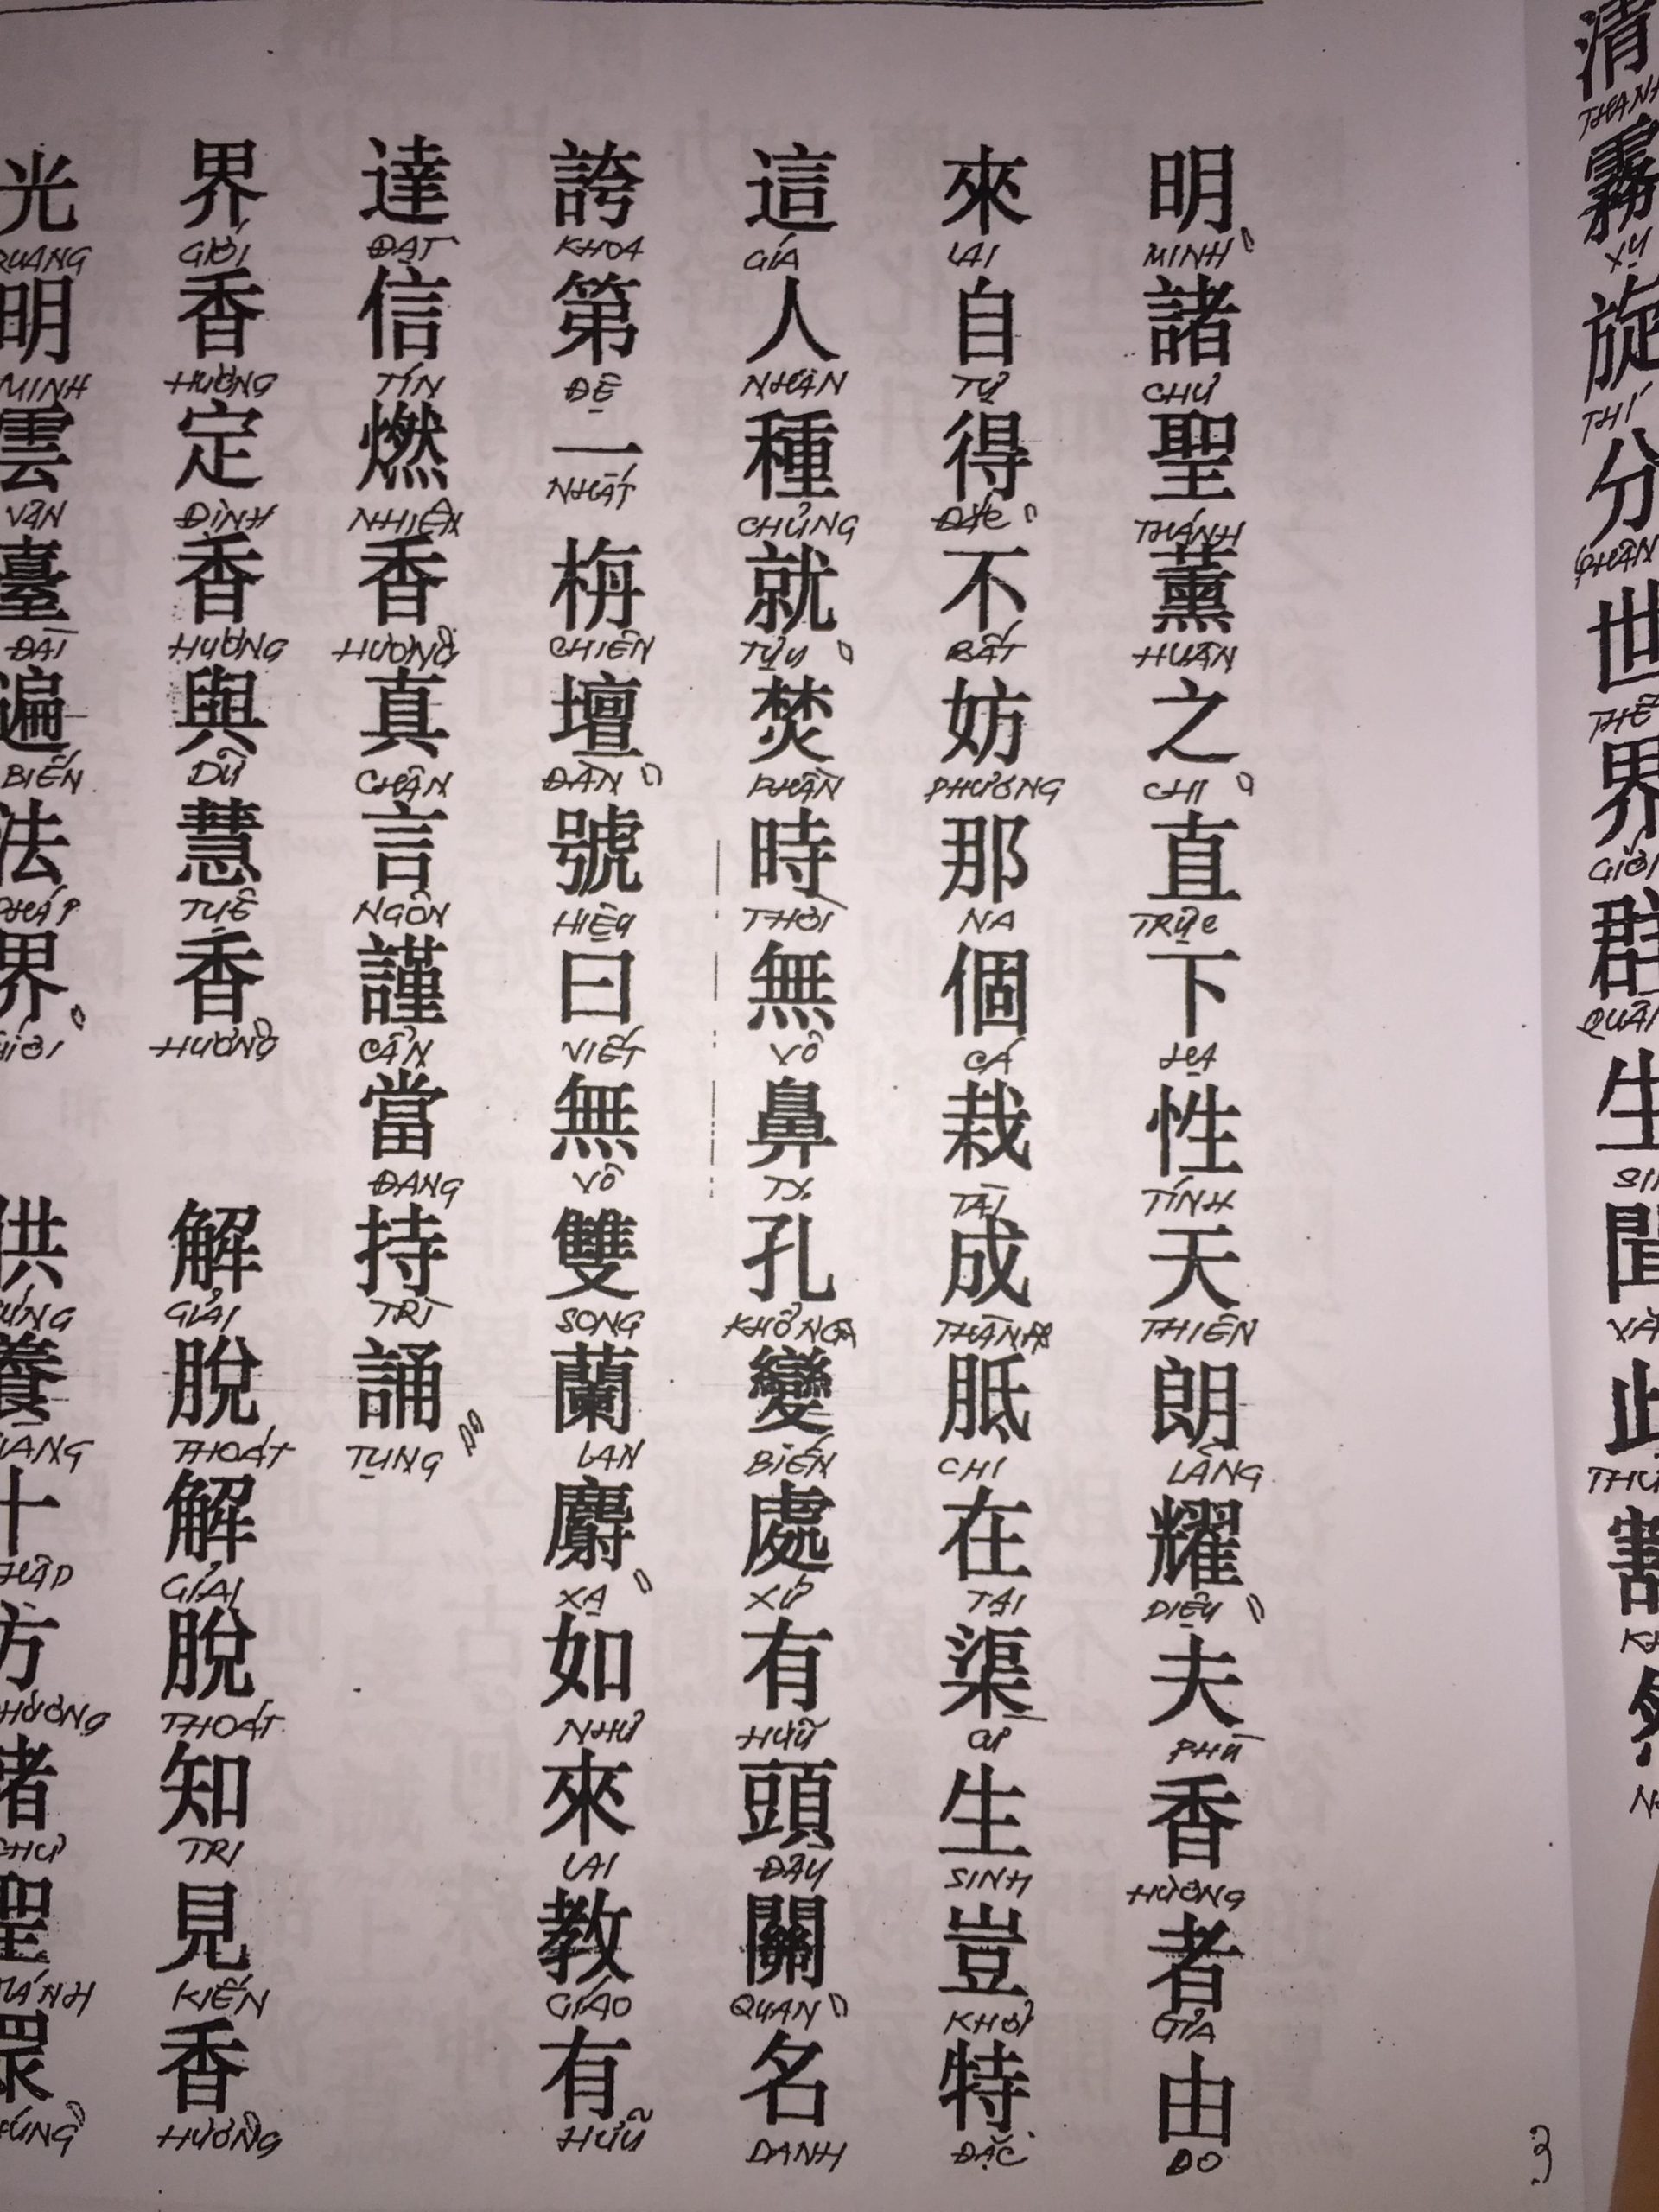 清霧旋分世界群生聞此
THANH XỤ THÍ PHÂN THẾ GIỚI QUẦN
明諸聖薰之直下性天朗耀夫香者由
MINH CHƯ THÁNH HUÂN CHI TRỰC HẠ TÍNH THIÊN LÃNG DIỆU PHÙ HƯƠNG GIẢ DO
來自得不妨那個栽成胝在渠生豈特
LAI TỰ ĐẮC BẤT PHƯƠNG NA CÁ TÀI THÀNH CHI TẠI CỪ SINH KHỞI ĐẶC
這人種就焚時無鼻孔變處有頭關名
GIÁ NHÂN CHỦNG TỰU PHẦN THỜI VÔ TỴ KHỔNG BIẾN XỨ HỮU ĐẦU QUAN DANH
誇第一栴壇號曰無雙蘭麝如來教有
KHOA ĐỆ NHẤT CHIÊN ĐÀN HIỆU VIẾT VÔ SONG LAN XẠ NHƯ LAI GIÁO HỮU
達信燃香真言謹當持誦
ĐẠT TÍN NHIÊN HƯƠNG CHÂN NGÔN CẨN ĐANG TRÌ TỤNG
界香定香與慧香 解脫解脫知見香
GIỚI HƯƠNG ĐỊNH HƯƠNG DỮ TUỆ HƯƠNG GIẢI THOÁT GIẢI THOÁT TRI KIẾN HƯƠNG
光明雲臺遍法界 供養十方諸聖眾
QUANG MINH VÂN ĐÀI BIẾN PHÁP GIỚI
3